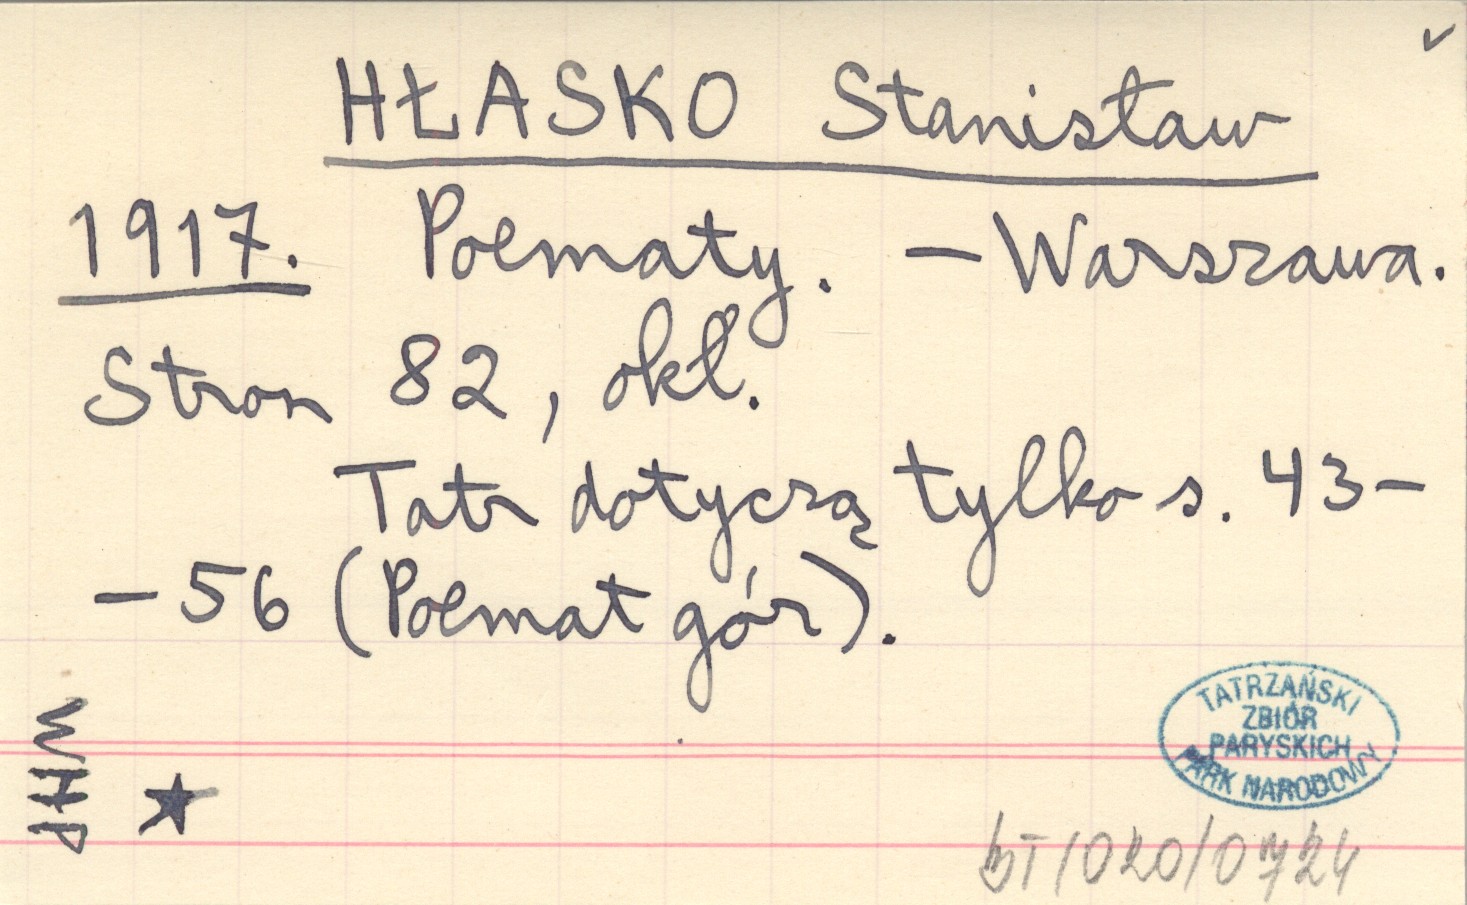 HŁASKO Stanisław
1917. Poematy. — Warszawa.
Stron 82, okł.
Tatr dotyczą tylko s. 43—
— 56 (Poemat gór).
WHP
TATRZAŃSKI
ZBIÓR
PARYSKICH
PARK NARODOWY
/020/0724